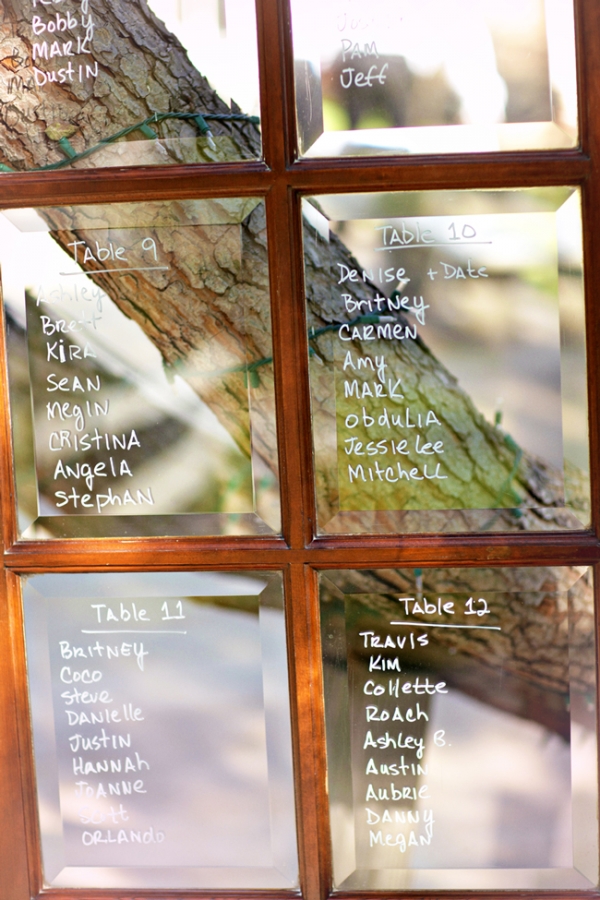 Bobby
MARK
DustiN
PAM
Jeff
Table 9
Ashley
Brett
KiRA
SEAN
MegiN
CRISTINA
ANgelA
StephAN
Table 10
Denise + Date
Britney
CARMEN
Amy
MARK
ObdulIA
Jessie Lee
Mitchell
Table 11
BRitNEY
Coco
Steve
DANielle
JustiN
HANNAh
JoANNe
Scott
ORLANdo
Table 12
TRAVIS
KIM
Collette
RoAch
Ashley B.
AustiN
Aubrie
DANNY
MegAN